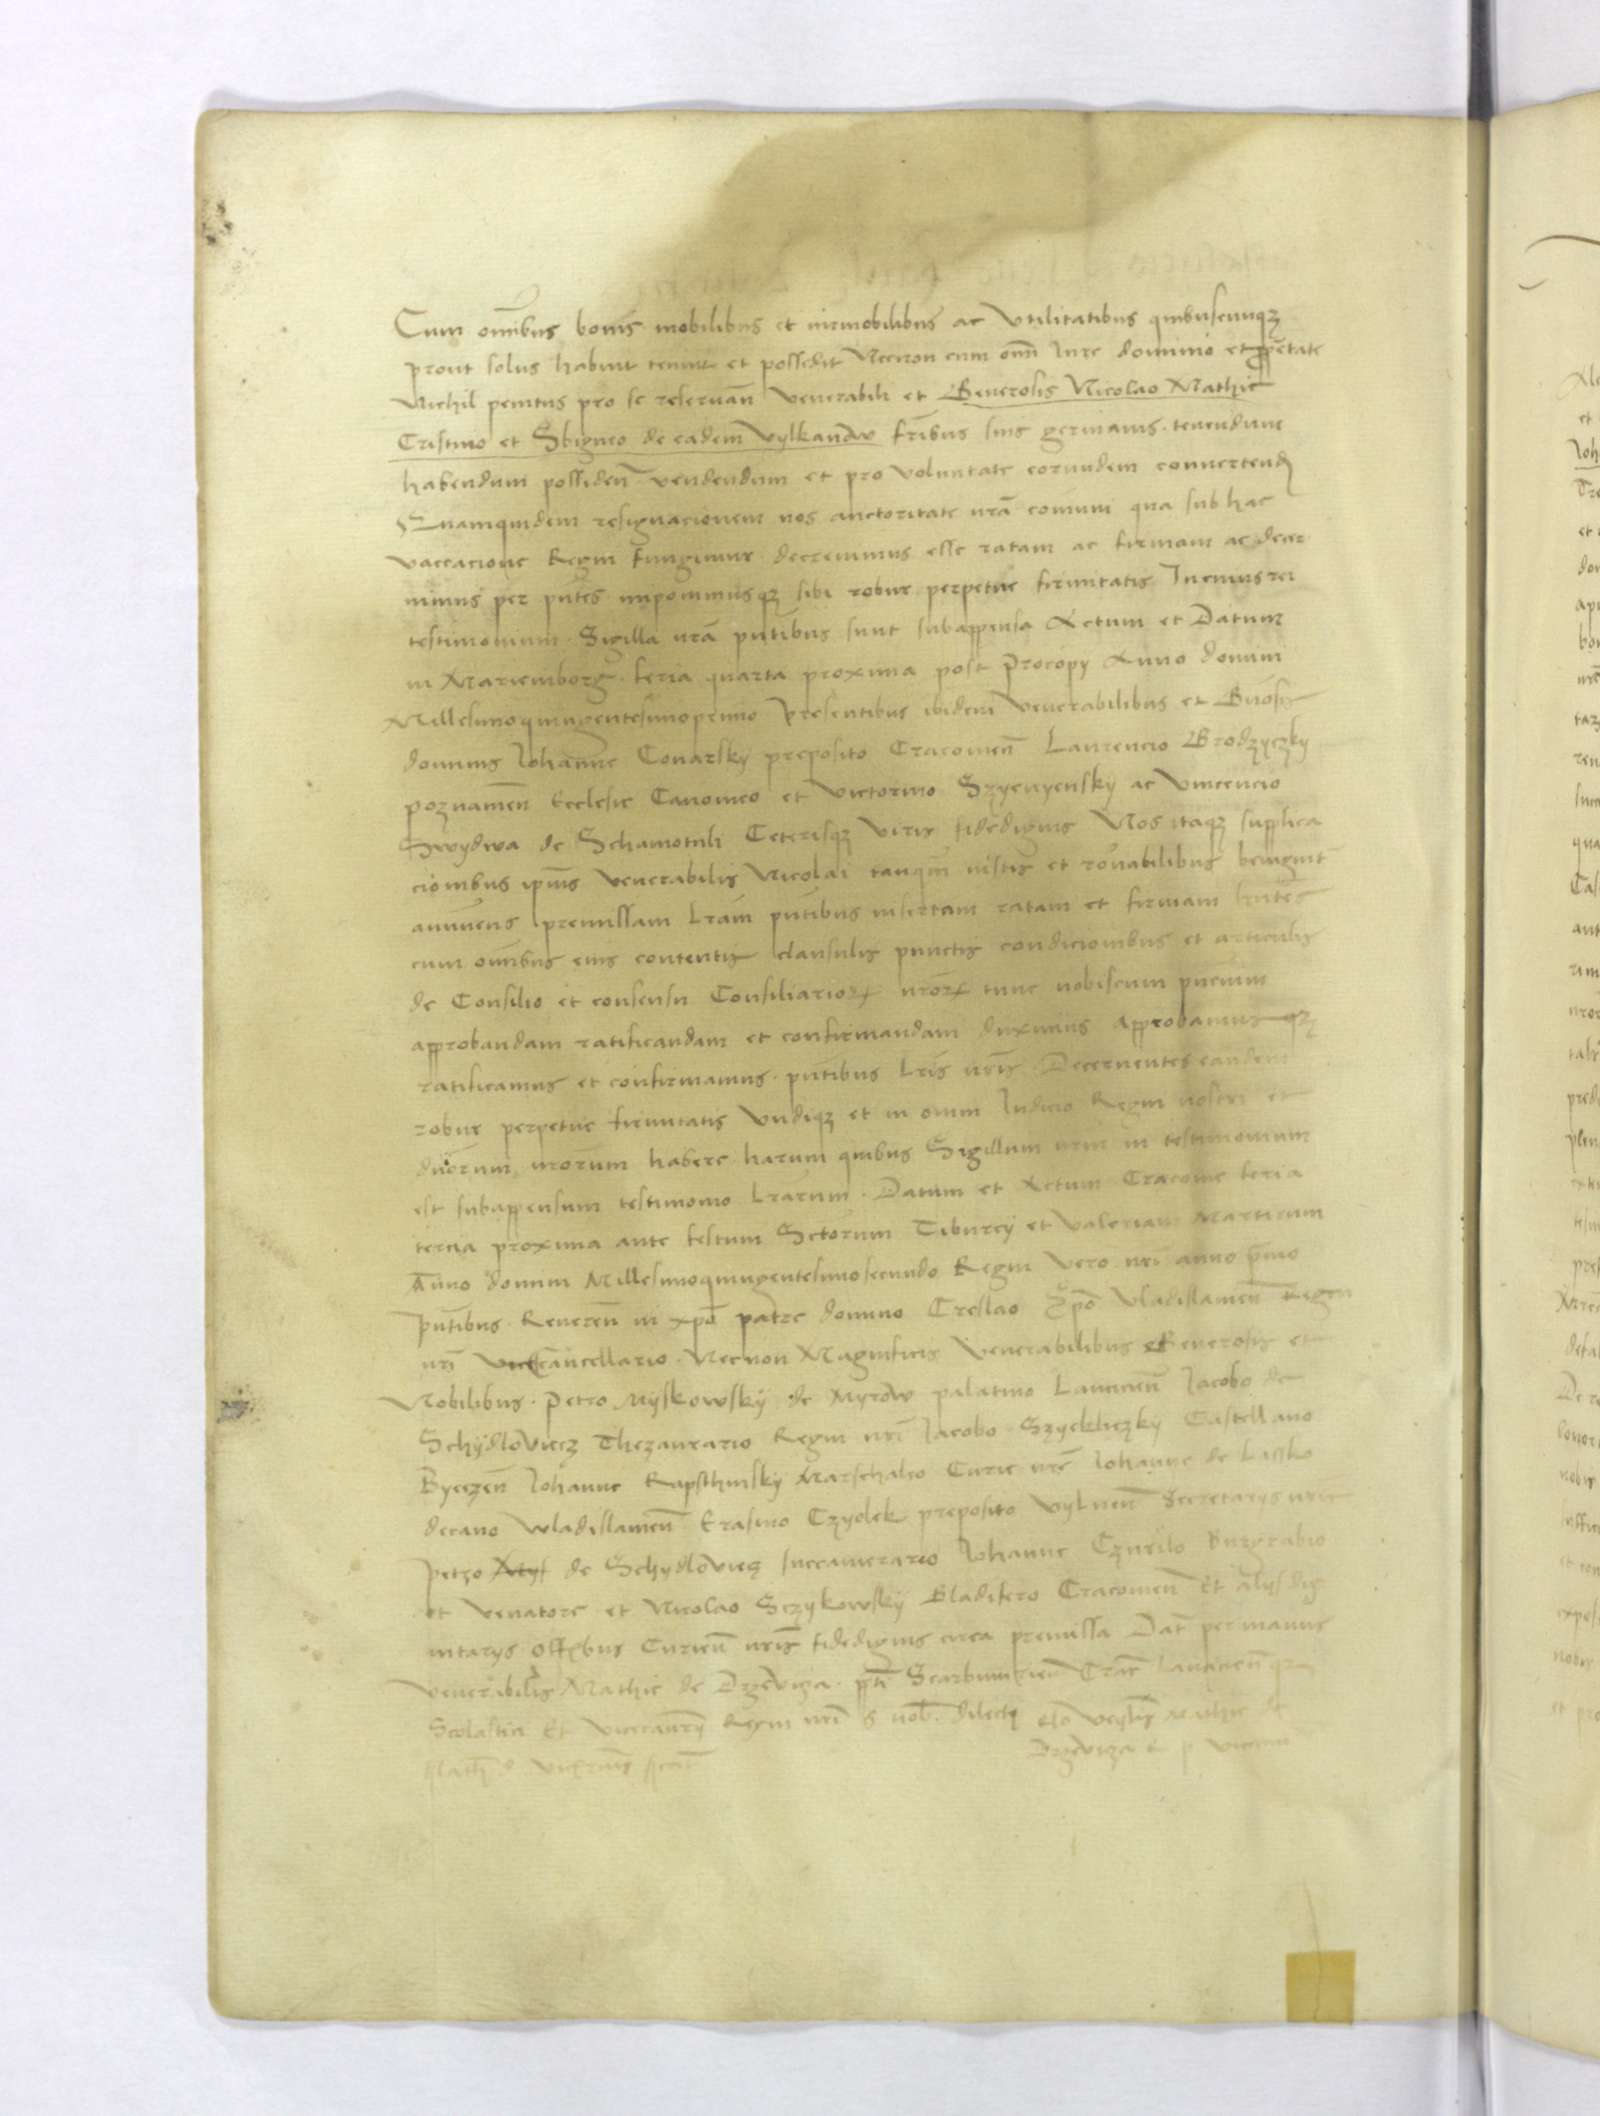 Cum om̄ibus bonis mobilibus et immobilibus ac Vtilitatibus quibuscunqꝫ
prout solus habuit tenuit et possedit Necnon cum om̄i Iure dominio et ꝓp̄etate
Nichil penitus pro se reseruan̄ Venerabili et Generosis Nicolao Mathie
Cristino et Sbigneo de eadem Vylkanow fr̄ibus suis germanis. tenendum
habendum possiden̄ vendendum et pro voluntate eorundem conuertend
Quamquidem resignacionem nos auctoritate nrā com̄uni qua sub hac
vaccacione Regni fungimur decreuimus esse ratam ac firmam ac decer
nimus per p̄ntes imponimusqꝫ sibi robur perpetue firmitatis In cuius rei
testimonium. Sigilla nrā p̄ntibus sunt subappensa Actum et Datum
in Mariemborg. feria quarta proxima post Procopy Anno domini
Millesimoquingentesimoprimo Presentibus ibidem Venerabilibus et Gn̄osis
dominis Iohanne Conarsky preposito Cracouien̄ Laurencio Brodzyczky
poznanien̄ Ecclesie Canonico et Victorino Szyenyensky ac Vincencio
Swydwa de Schamotuli Ceterisqꝫ viris fidedignis Nos itaqꝫ supplica
cionibus ipsius venerabilis Nicolai tanqm̄ iustis et rōnabilibus benignit̄
annuens premissam Lrām p̄ntibus insertam ratam et firmam hn̄tes
cum om̄ibus eius contentis clausulis punctis condicionibus et articulis
de Consilio et consensu Consiliarioꝝ nroꝝ tunc nobiscum pn̄cium
approbandam ratificandam et confirmandam duximus Approbamusqꝫ
ratificamus et confirmamus. p̄ntibus Lrīs nrīs Decernentes eandem
robur perpetue firmitatis vndiqꝫ et in omni Iudicio Regni nostri et
dn̄iorum nrorum habere harum quibus Sigillum nrm̄ in testimonium
est subappensum testimonio Lrārum. Datum et Actum Cracouie feria
tercia proxima ante festum Sctorum Tiburcÿ et Valeriani Martirum
Anno domini Millesimoquingentesimosecundo Regni vero nrī anno p̄mo
p̄ntibus. Reueren̄ in xpō patre domino Creslao Ep̄o Vladislauien̄ Regni
nrī Vicecancellario. Necnon Magnificis Venerabilibus Generosis et
Nobilibus. Petro Myskowskÿ de Myrow palatino Lancicien̄ Iacobo de
Schÿdloviecz Thezaurario Regni nrī Iacobo Szyeklyczky Castellano
Byeczen̄ Iohanne Rapsthinskÿ Marschalco Curie nrē Iohanne de Lassko
decano Wladislauien̄ Erasmo Czyolek preposito Vylnen̄ Secretarys nrīs
Petro de Schydloviecz succamerario Iohanne Czurilo Burgrabio
et Venatore et Nicolao Sczykowskÿ Gladifero Cracouien̄ Et alÿs dig
nitarys Curien̄ nrīs fidedignis circa premissa Dat̄ per manus
venerabilis Mathie de Drzevicza Scarbimirien̄ Crac̄
Scolastici Et Regni nrī nob̄. dilecti Mathie de
Drzevicza